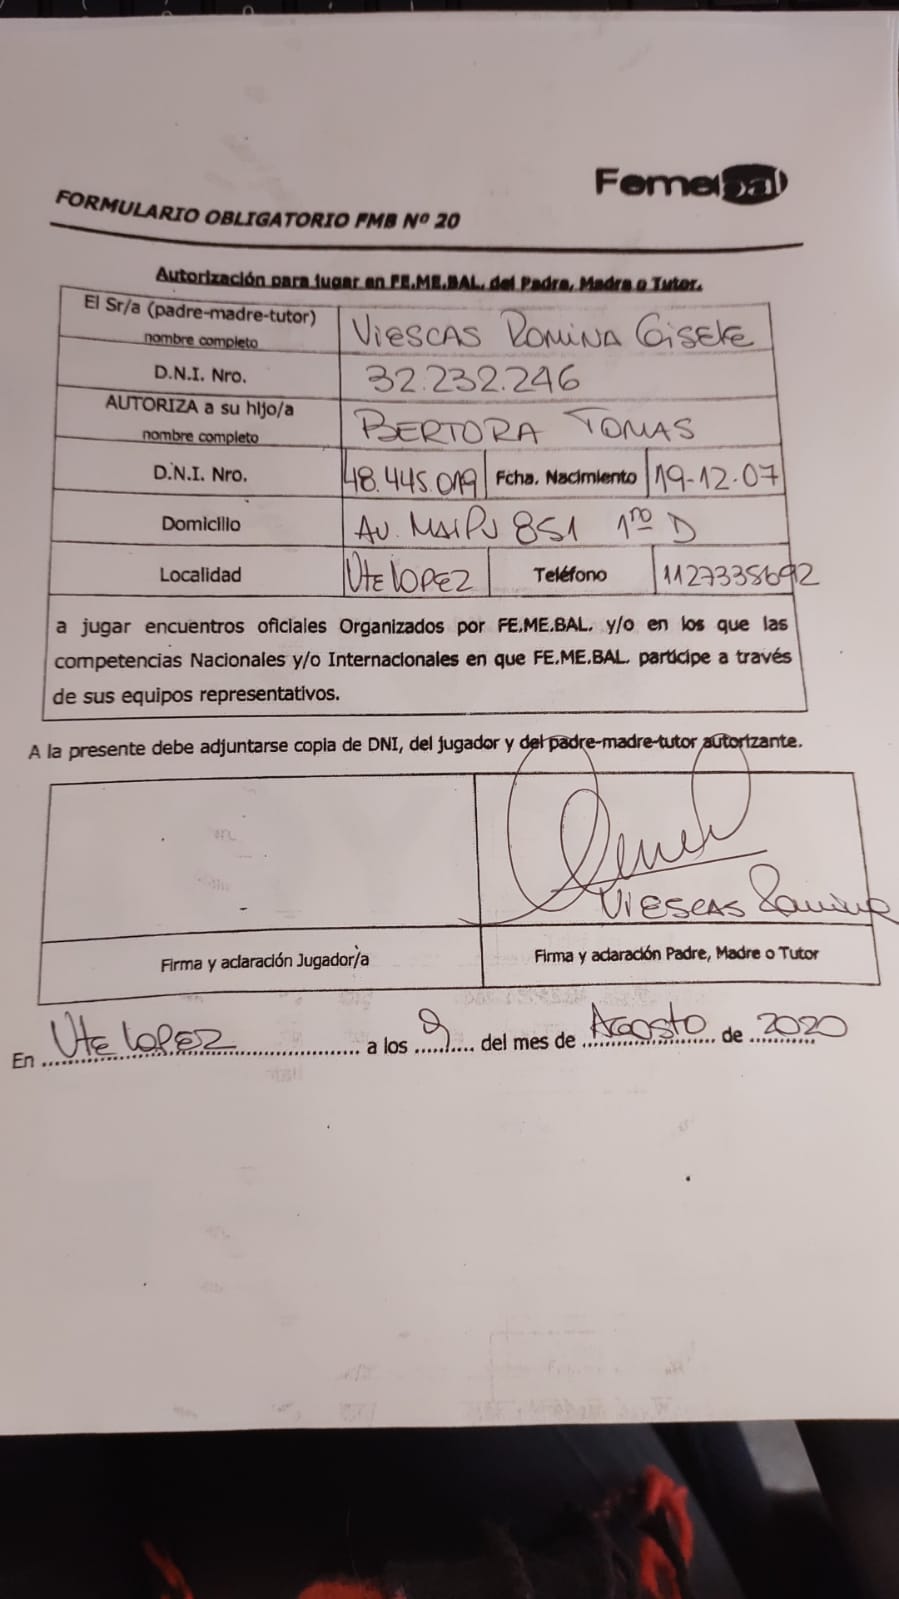 Femebal
FORMULARIO OBLIGATORIO FMB Nº 20
Autorización para jugar en FE.ME.BAL. del Padre, Madre o Tutor.
El Sr/a (padre-madre-tutor)
nombre completo
VIESCAS ROMINA GISELE
D.N.I. Nro.
32.232.246
AUTORIZA a su hijo/a
nombre completo
BERTORA TOMAS
D.N.I. Nro. 48.445.019 Fcha. Nacimiento 19-12-07
Domicilio AV. MAIPU 851 1ro D
Localidad Vte LOPEZ Teléfono 1127335692
a jugar encuentros oficiales Organizados por FE.ME.BAL. y/o en los que las
competencias Nacionales y/o Internacionales en que FE.ME.BAL. participe a través
de sus equipos representativos.
A la presente debe adjuntarse copia de DNI, del jugador y del padre-madre-tutor autorizante.
VIESCAS Romina
Firma y aclaración Jugador/a
Firma y aclaración Padre, Madre o Tutor
En Vte LOPEZ a los 9 del mes de AGOSTO de 2020